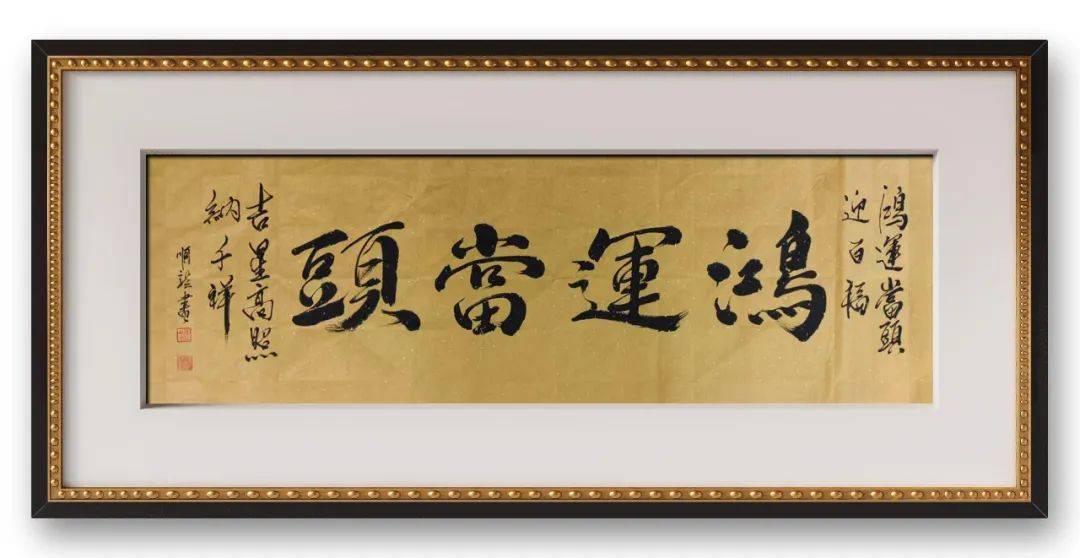 鴻運當頭
迎百福
鴻運當頭
吉星高照
納千祥
書